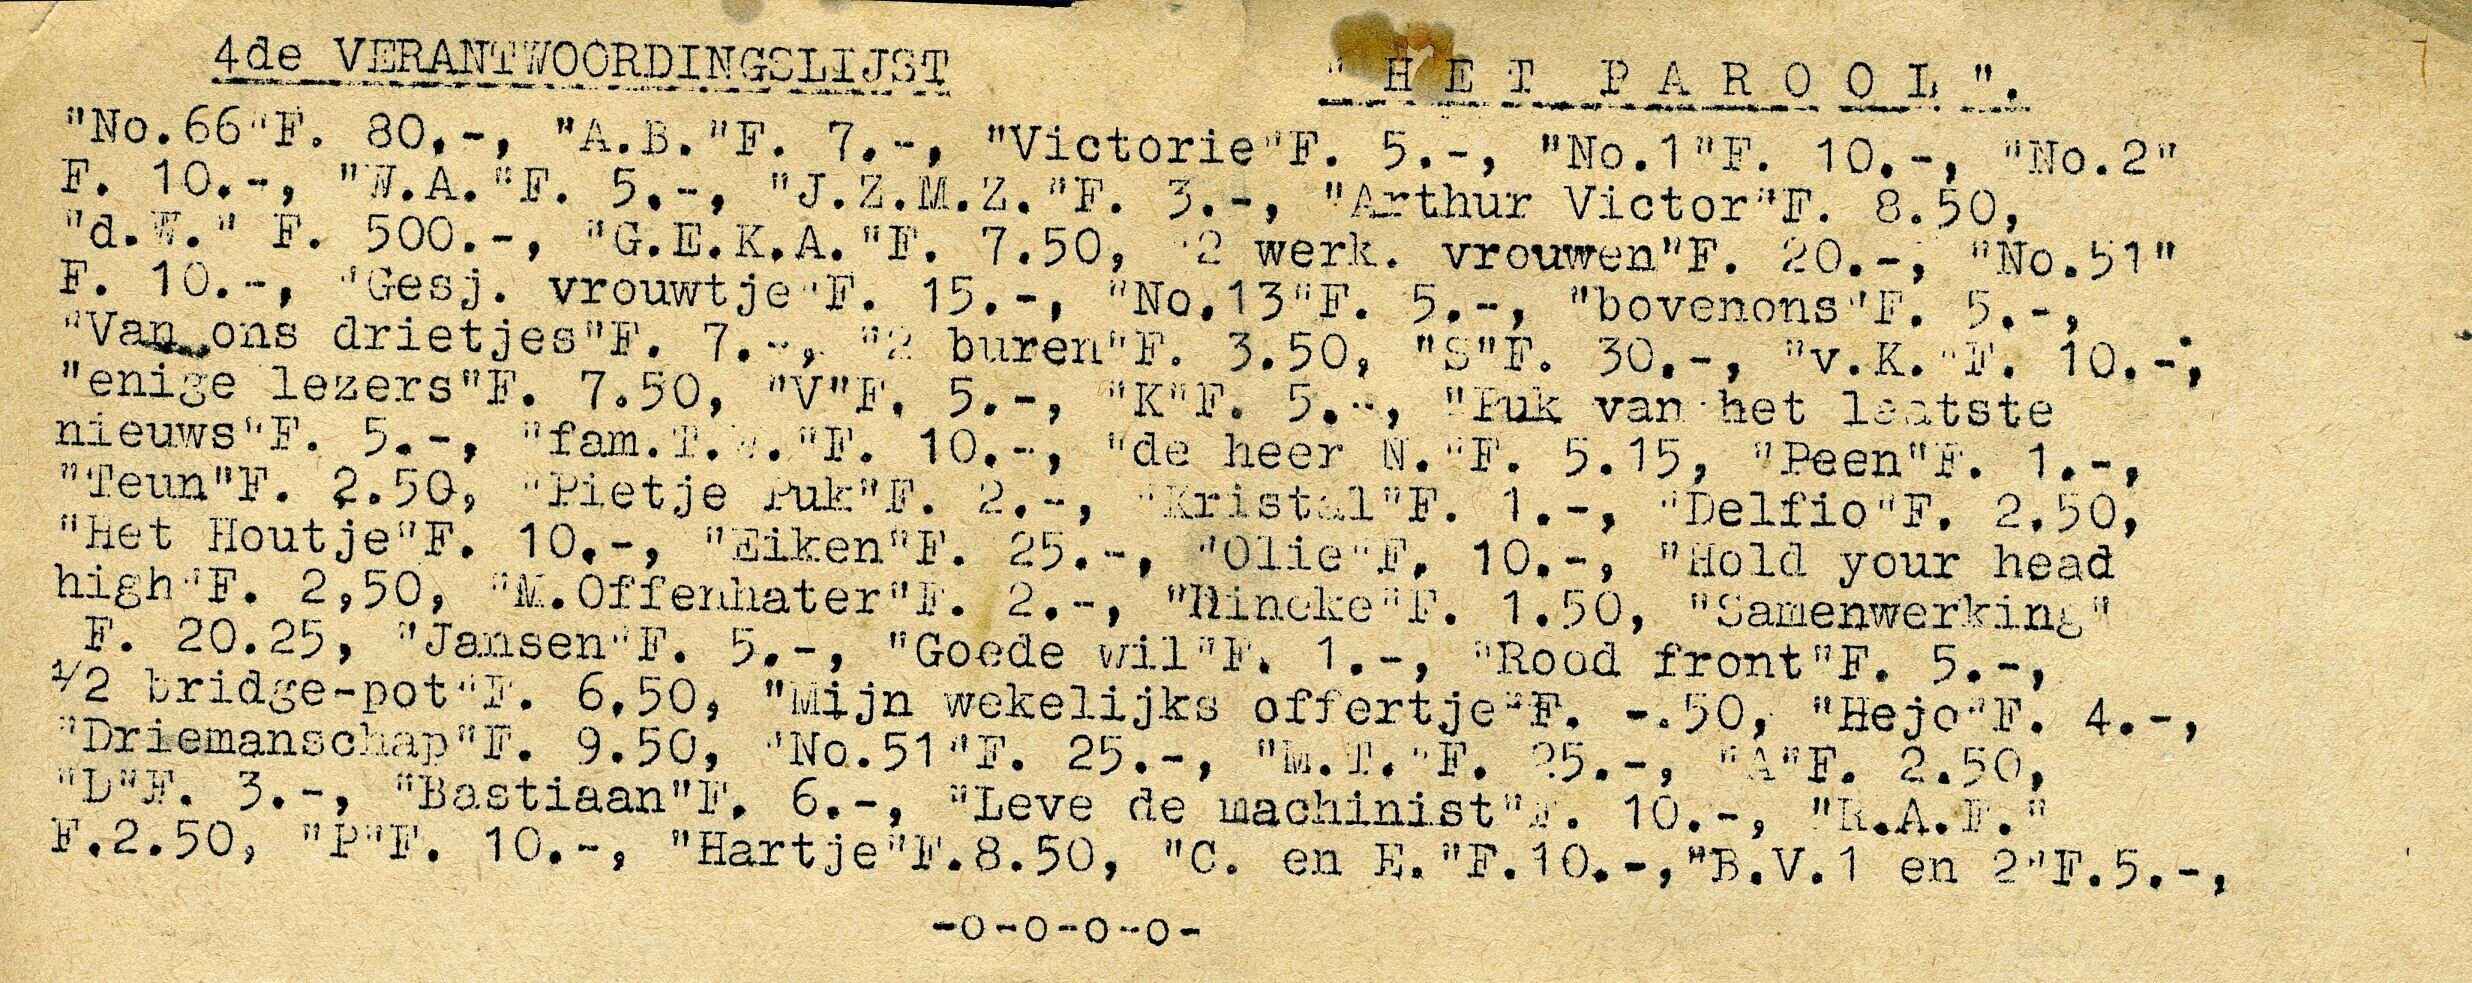 4de VERANTWOORDINGSLIJST "H E T P A R O O L".
"No.66"F. 80.-, "A.B."F. 7.-, "Victorie"F. 5.-, "No.1"F. 10.-, "No.2"
F. 10.-, "W.A."F. 5.-, "J.Z.M.Z."F. 3.-, "Arthur Victor"F. 8.50,
"d.W." F. 500.-, "G.E.K.A."F. 7.50, "2 werk. vrouwen"F. 20.-, "No.51"
F. 10.-, "Gesj. vrouwtje"F. 15.-, "No.13"F. 5.-, "bovenons"F. 5.-,
"Van ons drietjes"F. 7.-, "2 buren"F. 3.50, "S"F. 30.-, "v.K."F. 10.-,
"enige lezers"F. 7.50, "V"F. 5.-, "K"F. 5.-, "Puk van het laatste
nieuws"F. 5.-, "fam.T.W."F. 10.-, "de heer N."F. 5.15, "Peen"F. 1.-,
"Teun"F. 2.50, "Pietje Puk"F. 2.-, "Kristal"F. 1.-, "Delfio"F. 2.50,
"Het Houtje"F. 10.-, "Eiken"F. 25.-, "Olie"F. 10.-, "Hold your head
high"F. 2,50, "M.Offenhater"F. 2.-, "Nincke"F. 1.50, "Samenwerking"
F. 20.25, "Jansen"F. 5.-, "Goede wil"F. 1.-, "Rood front"F. 5.-,
½ bridge-pot"F. 6.50, "Mijn wekelijks offertje"F. -.50, "Hejo"F. 4.-,
"Driemanschap"F. 9.50, "No.51"F. 25.-, "M.T."F. 25.-, "A"F. 2.50,
"L"F. 3.-, "Bastiaan"F. 6.-, "Leve de machinist"F. 10.-, "R.A.F."
F.2.50, "P"F. 10.-, "Hartje"F.8.50, "C. en E."F.10.-,"B.V.1 en 2"F.5.-,
-o-o-o-o-